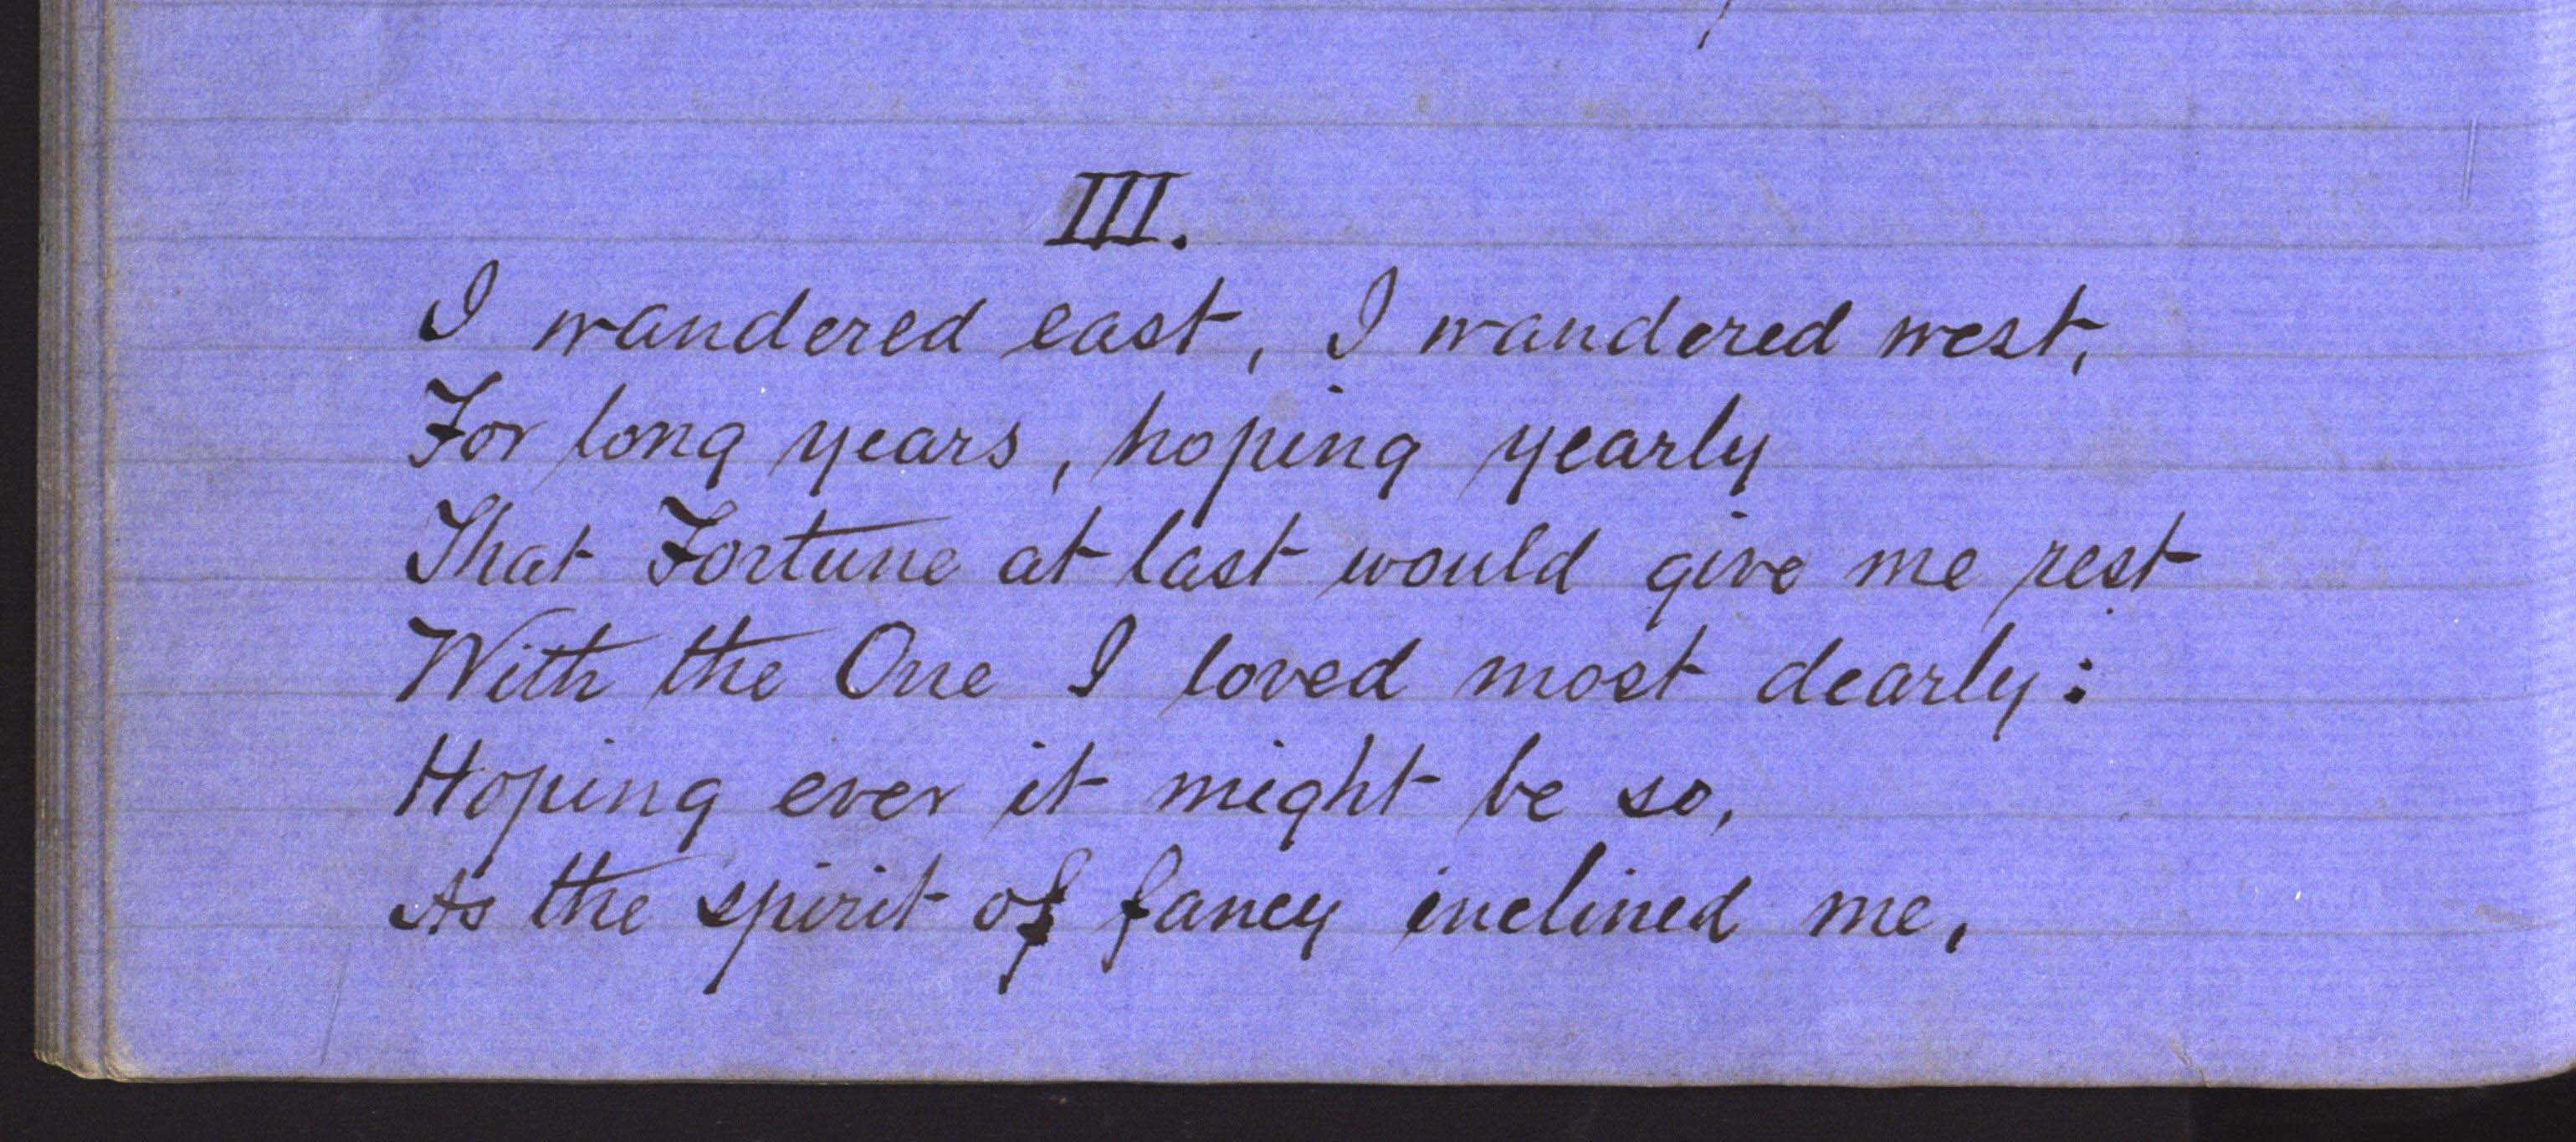 III.
I wandered east, I wandered west,
For long years, hoping yearly
That Fortune at last would give me rest
With the One I loved most dearly:
Hoping ever it might be so,
As the spirit of fancy inclined me,